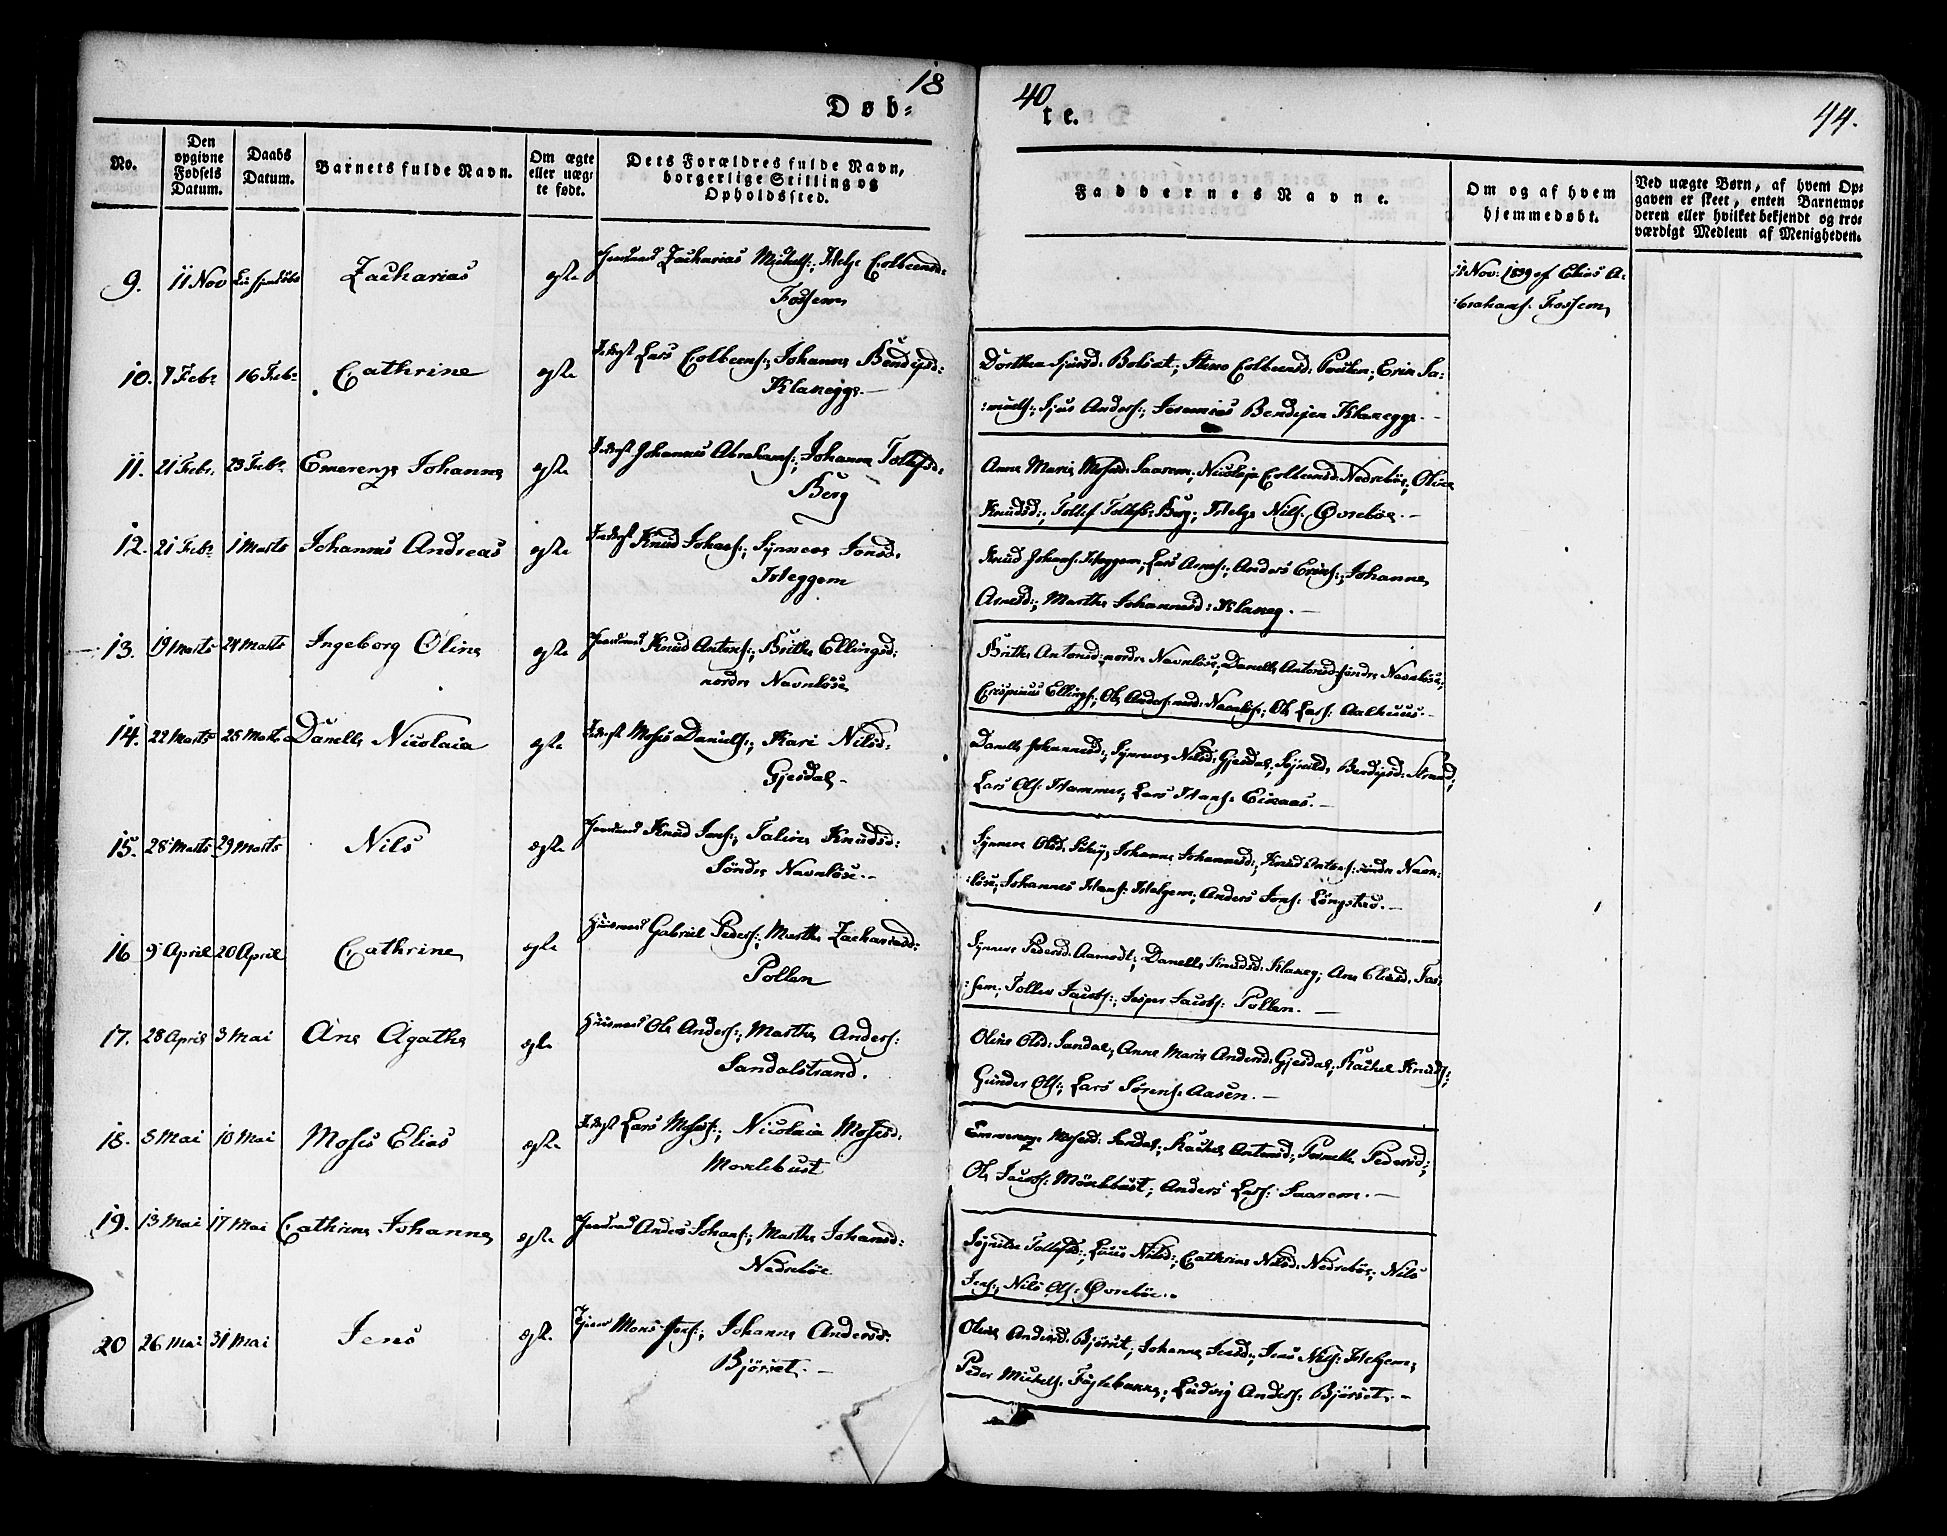 18
40
44.
Døb-
te.
No.
Den
opgivne
Fødsels
Datum.
Daabs
Datum.
Barnets fulde Navn.
Om ægte
eller uæg-
te født.
Dets Forældres fulde Navn,
borgerlige Stilling og
Opholdssted.
Faddernes Navne.
Om og af hvem
hjemmedøbt.
Ved uægte Børn, af hvem Op-
gaven er skeet, enten Barnemo-
deren eller hvilket bekjendt og tro-
værdigt Medlem af Menigheden.
9. 11 Nov Zacharias egte Zacharias Michels:; Helge Colbeensd:
Fossem
11 Nov: 1839 af Elias A-
:brahams: Fossem
10. 7 Febr 16 Febr Cathrine egte Lars Colbeens:; Johanne Bendixsd:
Klanegge.—
Dorthea Sjursd: Bolsæt; Colbeensd: Erik Sa-
:muels:; Sjur Anders:; Jeremias Bendixen Klanegge.—
11. 21 Febr. 23 Febr. Emerenze Johanne egte Johannes Abrahams:; Johanne Tollefsd:
Berg
Anne Marie Mosesd: Saarem; Nicolaja Colbeensd: Nedrebøe; Oline
Knudsd:; Tollef Tollefs: Berg; Helge Nils: Øvrebøe.—
12. 21 Febr 1 Marts Johannes Andreas egte Knud Johans:; Synneve Jonsd:
Heggem
Knud Johans: Heggem; Lars Arnes:; Anders Eriks:; Johanne
Arnesd:; Marthe Johannesd: Klaneg.—
13. 19 Marts 24 Marts Ingeborg Oline egte Knud Antons:; Brithe Ellingsd:
nordre Navnløse
Brithe Antonsd: nordre Navnløse; Danelle Antonsd: søndre Navnløse;
Crispinus Ellings:; Ole Anders: Navnløse; Ole Lars: Aalhuus.—
14. 22 Marts 25 Marts Danelle Nicolaia egte Moses Daniels:; Kari Nilsd:
Gjesdal—
Danelle Johannesd:; Synneve Nilsd: Gjesdal; Bendixsd: Strand;
Lars Ols: Hammer; Lars Hans: Eikaas.—
15. 28 Marts 29 Marts Nils egte Knud Jens:; Taline Knudsd:
Søndre Navnløse.—
Synneve Olsd: Johanne Johannesd:; Knud Antons: søndre Navn-
:løse; Johannes Hans: Helgem; Anders Jons: Langstad.—
16 9 April 20 April Cathrine egte Huusmand Gabriel Peders:; Marthe Zachariasd:
Pollen
Synneve Pedersd: Aamodt; Danelle Knudsd: Klaneg; Ane Eliasd: Fos-
:sem; Jacobs:; Jesper Jacobs: Pollen.—
17. 28 April 3 Mai Ane Agathe egte Huusmand Ole Anders:; Marthe Anders:
Sandalstrand.
Oline Olsd: Sandal; Anne Marie Andersd: Gjesdal; Rachel Knuds:;
Gunder Ols:; Lars Sørens: Aasen.—
18. 8 Mai 10 Mai Moses Elias egte Lars Moses:; Nicolaia Mosesd:
Morlebust
Emerenze Mosesd: Sandal; Rachel Antonsd:; Pernelle Pedersd:;
Ole Jacobs: Mörklebust; Anders Lars: Saarem.—
19. 13 Mai 17 Mai Cathrine Johanne egte Anders Johans:; Marthe Johansd:
Nedrebøe
Tollefsd:; Nilsd:; Cathrine Nilsd: Nedrebøe; Nils
Jens:; Nils Ols: Øvrebøe.
20 26 Mai 31 Mai Jens egte Mons Jens:; Johanne Andersd:
Bjørset.—
Oline Andersd: Bjørset; Johanne Jensd:; Jens Nils: Helgem;
Peder Michels: Ludvig Anders: Bjørset.—